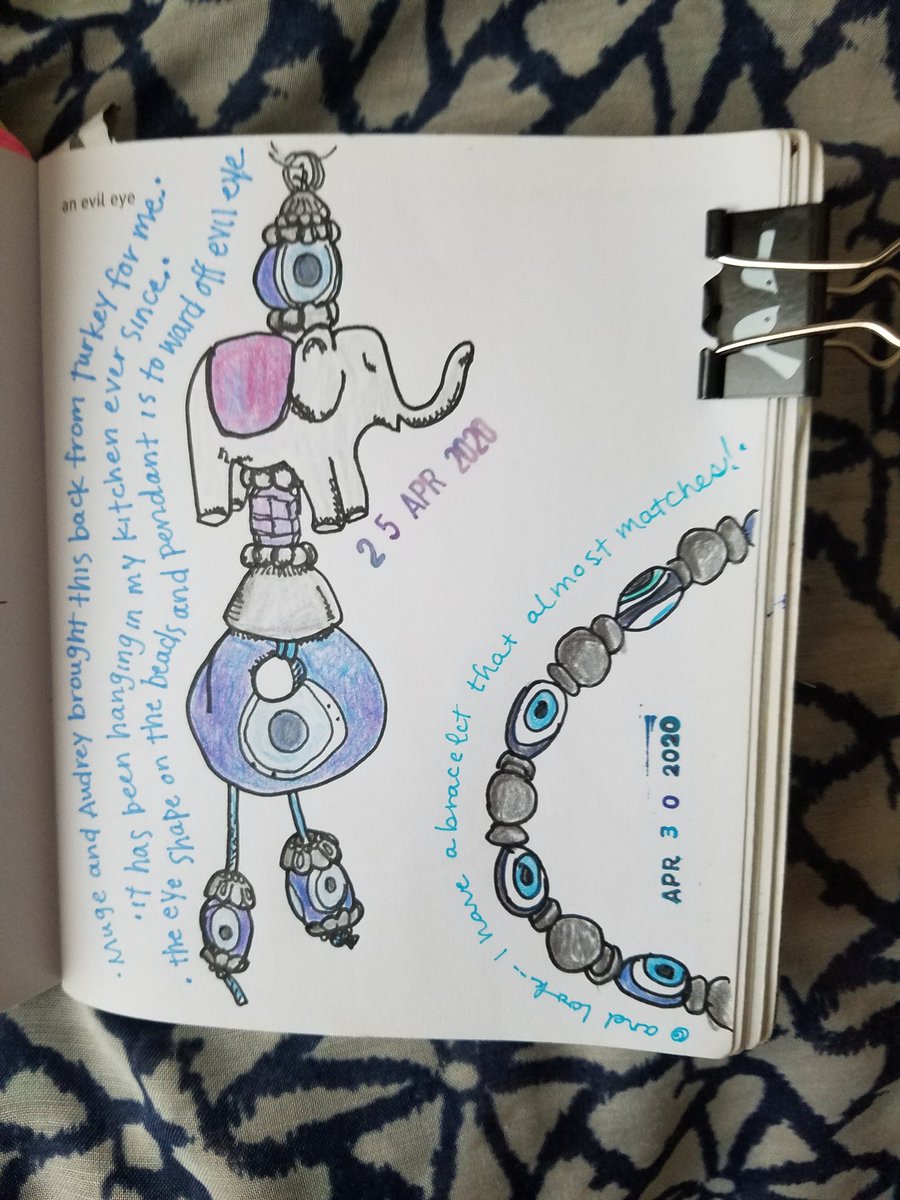 an evil eye
• Muge and Audrey brought this back from Turkey for me..
• it has been hanging in my kitchen ever since..
• the eye shape on the beads and pendant is to ward off evil eye
25 APR 2020
and look... I have a bracelet that almost matches!.
APR 30 2020